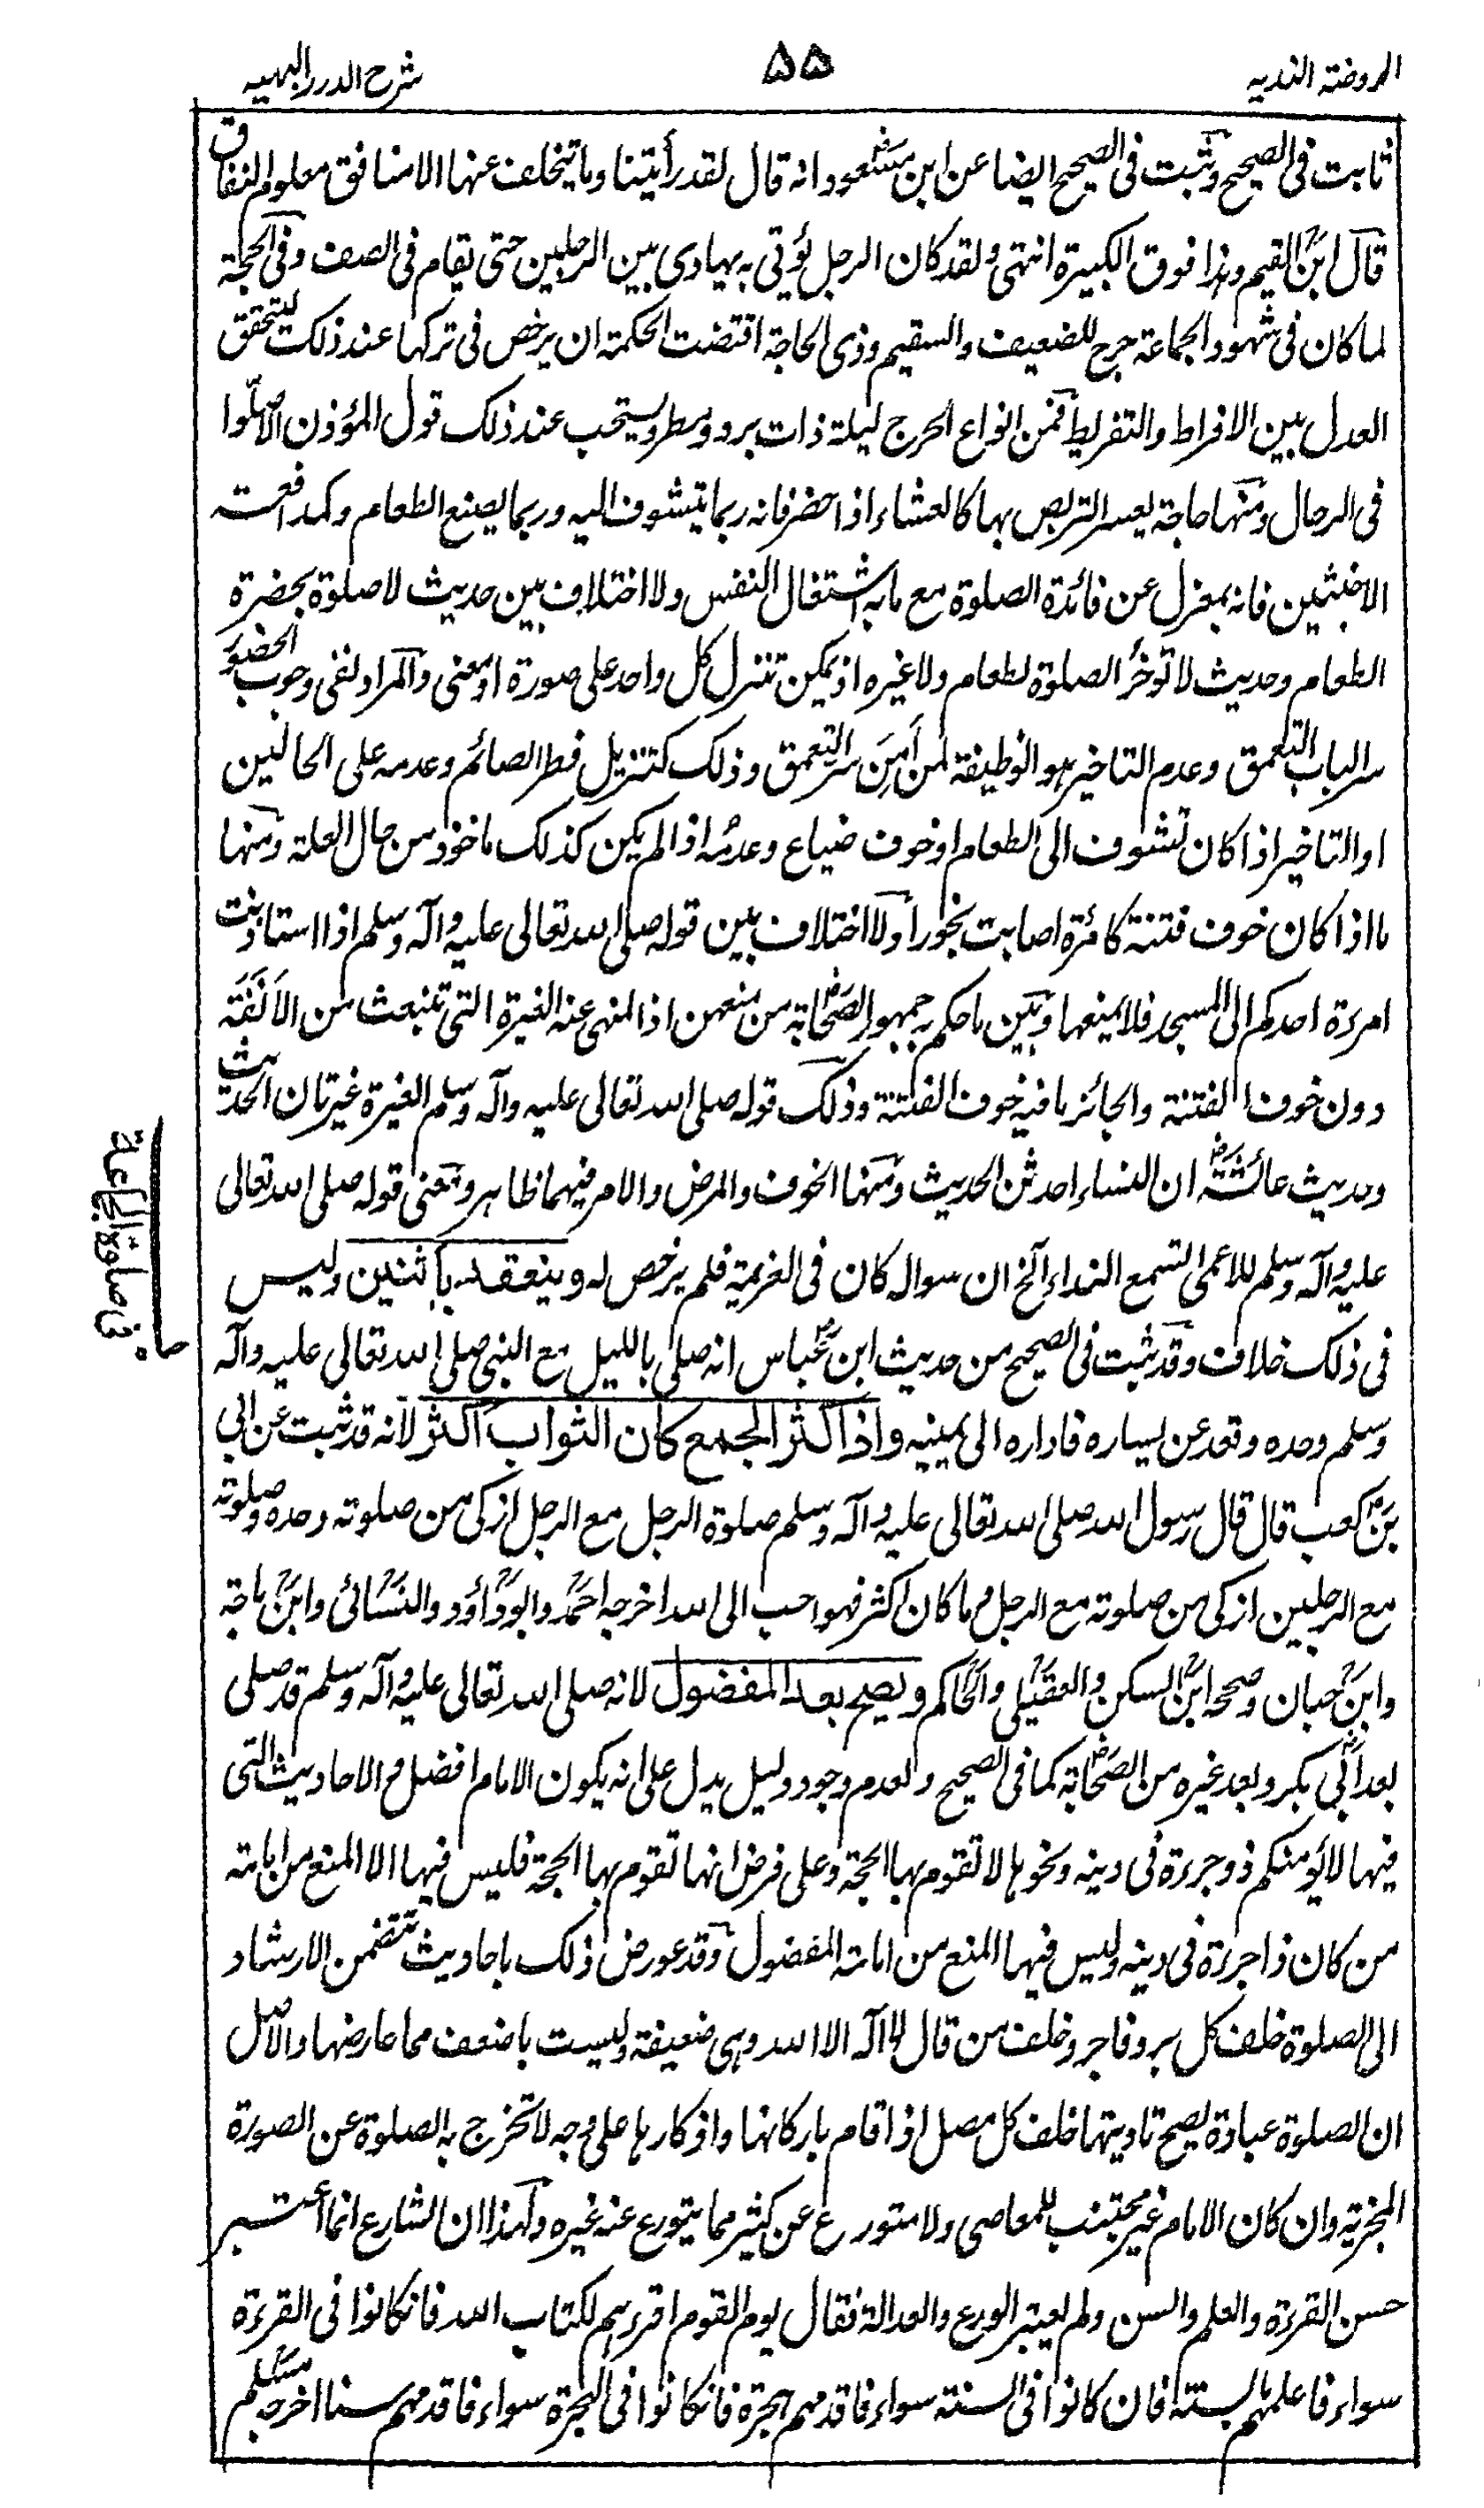 الروضة الندیه
۵۵
شرح الدرر البهیه
ثابت فی الصحیح وثبت فی الصحیح ایضا عن ابن مسعود انه قال لقد رأیتنا وما یتخلف عنها الا منافق معلوم النفاق
قال ابن القیم وهذا فوق الکبیرة انتهی ولقد کان الرجل یؤتی به یهادی بین الرجلین حتی یقام فی الصف وفی الحجة
لما کان فی شهود الجماعة حرج للضعیف والسقیم وذی الحاجة اقتضت الحکمة ان یرخص فی ترکها عند ذلک لیتحقق
العدل بین الافراط والتفریط فمن انواع الحرج لیلة ذات برد ومطر ویستحب عند ذلک قول المؤذن الا صلوا
فی الرحال ومنها حاجة یعسر التربص بها کالعشاء اذا حضر فانه ربما یتشوف الیه وربما یضیع الطعام وکمدافعة
الاخبثین فانه بمعزل عن فائدة الصلوة مع ما به اشتغال النفس ولا اختلاف بین حدیث لا صلوة بحضرة
الطعام وحدیث لا تؤخر الصلوة لطعام ولا غیره اذ یمکن تنزیل کل واحد علی صورة او معنی والمراد نفی وجوب الحضور
سد الباب التعمق وعدم التاخیر هو الوظیفة لمن أمن شر التعمق وذلک کتنزیل فطر الصائم وعدمه علی الحالین
او التاخیر اذا کان تشوف الی الطعام او خوف ضیاع وعدمه اذا لم یکن کذلک ماخوذ من حال العلة ومنها
ما اذا کان خوف فتنة کامرأة اصابت بخورا ولا اختلاف بین قوله صلی الله تعالی علیه وآله وسلم اذا استاذنت
امرءة احدکم الی المسجد فلا یمنعها وبین ما حکم به جمهور الصحابة من منعهن اذ المنهی عنه الغیرة التی تنبعث من الانفة
دون خوف الفتنة والجائز ما فیه خوف الفتنة وذلک قوله صلی الله تعالی علیه وآله وسلم الغیرة غیرتان الحدیث
وحدیث عائشة ان النساء احدثن الحدیث ومنها الخوف والمرض والامر فیهما ظاهر ومعنی قوله صلی الله تعالی
علیه وآله وسلم للاعمی اتسمع النداء الخ ان سواله کان فی العزیمة فلم یرخص له وینعقد باثنین ولیس
فی ذلک خلاف وقد ثبت فی الصحیح من حدیث ابن عباس انه صلی باللیل مع النبی صلی الله تعالی علیه وآله
وسلم وحده وقعد عن یساره فاداره الی یمینه واذا کثر الجمع کان الثواب اکثر لانه قد ثبت عن ابی
بن کعب قال قال رسول الله صلی الله تعالی علیه وآله وسلم صلوة الرجل مع الرجل ازکی من صلوته وحده وصلوته
مع الرجلین ازکی من صلوته مع الرجل وما کان اکثر فهو احب الی الله اخرجه احمد وابو داؤد والنسائی وابن ماجة
وابن حبان وصححه ابن السکن والعقیلی والحاکم ویصح بعد المفضول لانه صلی الله تعالی علیه وآله وسلم قد صلی
بعد ابی بکر وبعد غیره من الصحابة کما فی الصحیح ولعدم وجود دلیل یدل علی انه یکون الامام افضل والاحادیث التی
فیها لا یؤمنکم ذو جرءة فی دینه ونحوها لا تقوم بها الحجة وعلی فرض انها تقوم بها الحجة فلیس فیها الا المنع من امامته
من کان ذا جرءة فی دینه ولیس فیها المنع من امامة المفضول وقد عورض ذلک باحادیث تتضمن الارشاد
الی الصلوة خلف کل بر وفاجر وخلف من قال لا اله الا الله وهی ضعیفة ولیست باضعف مما عارضها والاصل
ان الصلوة عبادة یصح تادیتها خلف کل مصل اذا قام بارکانها واذکارها علی وجه لا تخرج به الصلوة عن الصورة
المجزیة وان کان الامام غیر مجتنب للمعاصی ولا متورع عن کثیر مما یتورع عنه غیره ولهذا ان الشارع انما اعتبر
حسن القرءة والعلم والسن ولم یعتبر الورع والعدالة فقال یوم القوم اقرءهم لکتاب الله فان کانوا فی القرءة
سواء فاعلمهم بالسنة فان کانوا فی السنة سواء فاقدمهم هجرة فان کانوا فی الهجرة سواء فاقدمهم سنا اخرجه مسلم
فی صلوة الجماعة